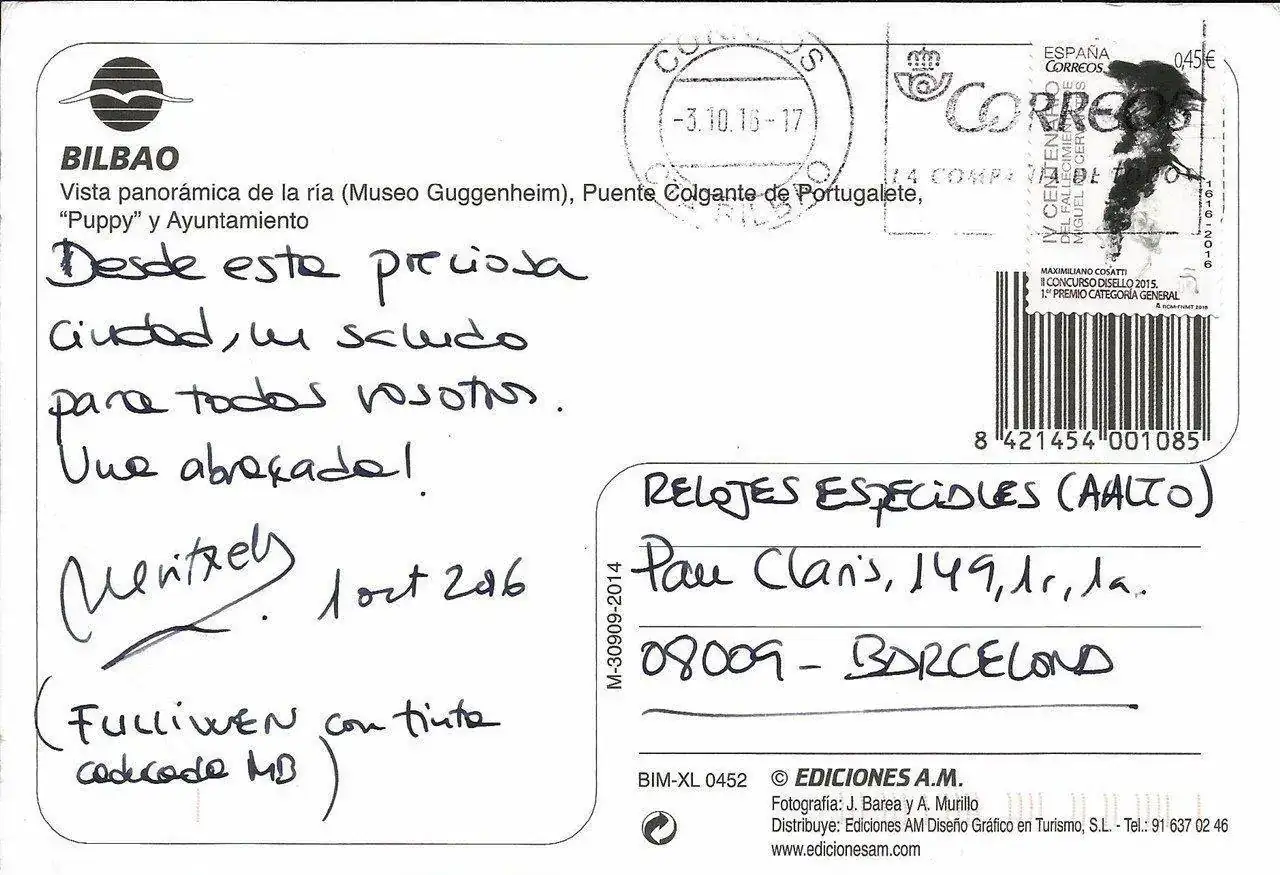 BILBAO
Vista panorámica de la ría (Museo Guggenheim), Puente Colgante de Portugalete,
“Puppy” y Ayuntamiento
Desde esta preciosa
ciudad, un saludo
para todos vosotros.
Una abraçada!
Meritxell
1 oct 2016
(FULLIWEN con tinta
caducada MB)
CORREOS
-3.10.16-17
BILBAO
CORREOS
LA COMPAÑIA DE TODOS
ESPAÑA
CORREOS
0,45€
IV CENTENARIO
DEL FALLECIMIENTO DE
MIGUEL DE CERVANTES
1616-2016
MAXIMILIANO COSATTI
II CONCURSO DISELLO 2015.
1.er PREMIO CATEGORÍA GENERAL
RCM-FNMT 2016
8 421454 001085
RELOJES ESPECIALES (AALTO)
Pau Claris, 149, 1r, 1a.
08009 - BARCELONA
M-30909-2014
BIM-XL 0452
© EDICIONES A.M.
Fotografía: J. Barea y A. Murillo
Distribuye: Ediciones AM Diseño Gráfico en Turismo, S.L. - Tel.: 91 637 02 46
www.edicionesam.com